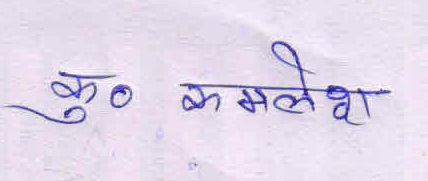 कु० कमलेश